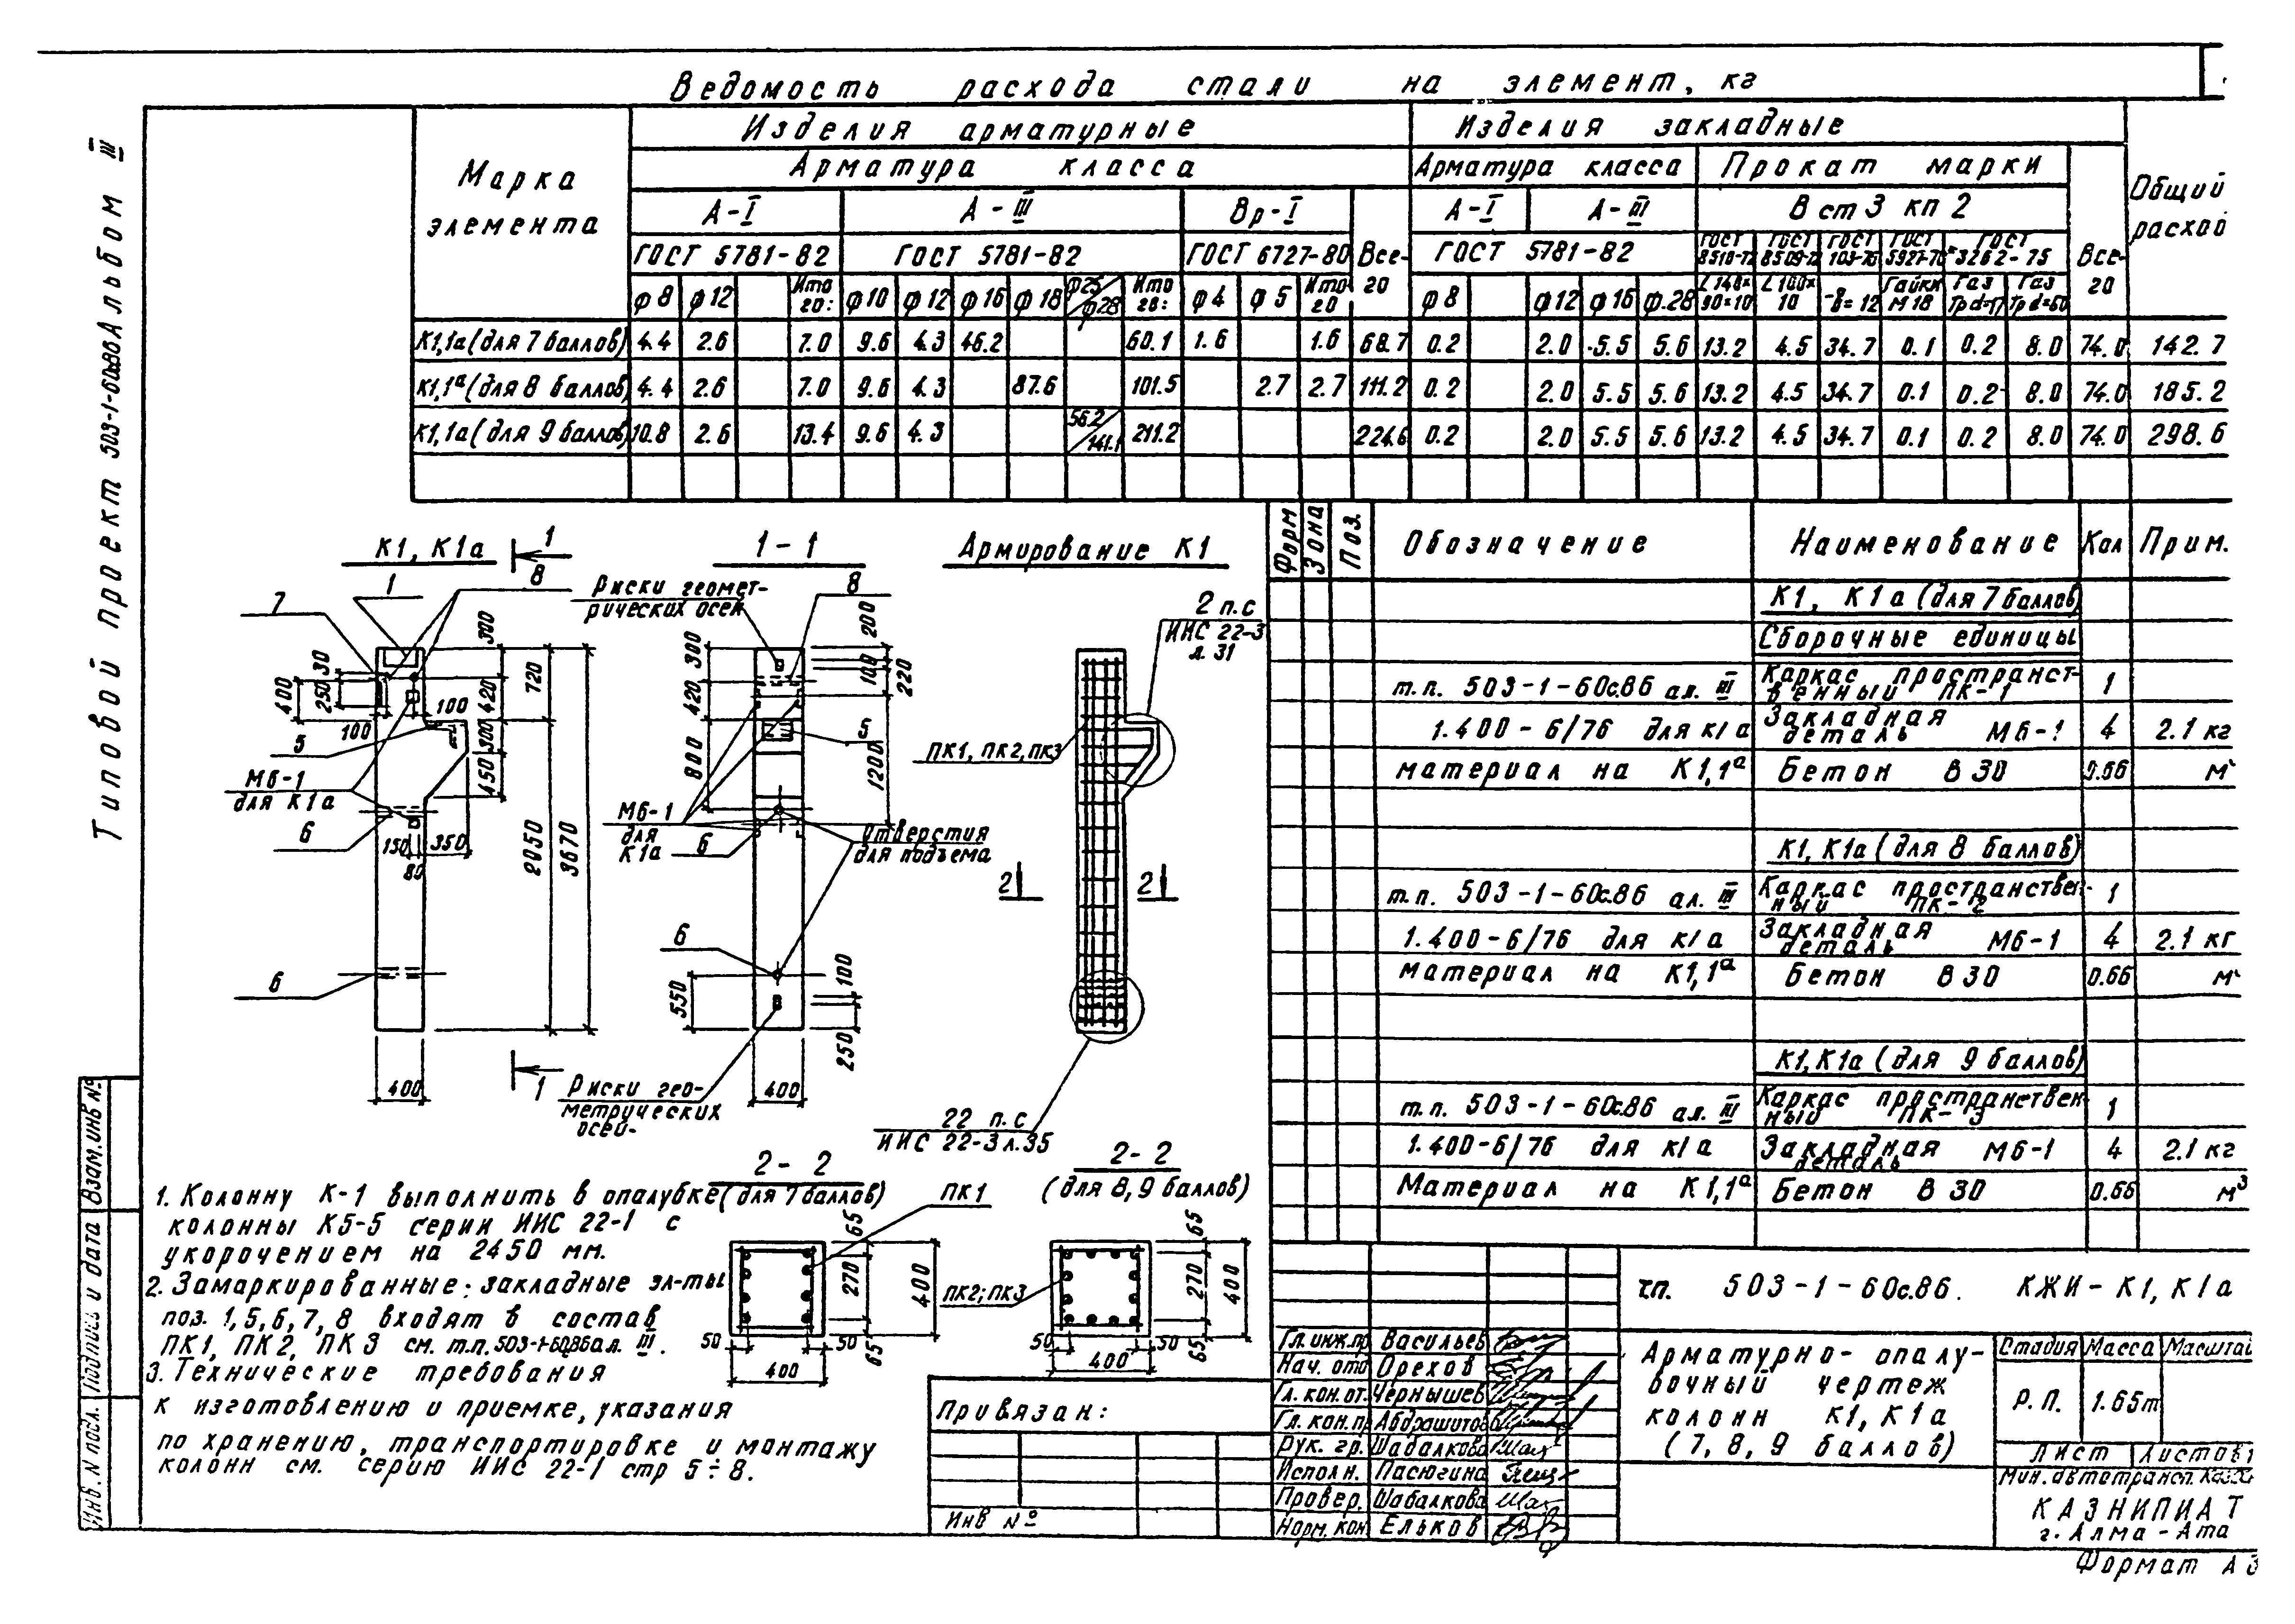 Ведомость расхода стали на элемент, кг
Типовой проект 503-1-60с86 Альбом III
Марка элемента
Изделия арматурные
Изделия закладные
Общий расход
Арматура класса
Арматура класса
Прокат марки
А-I А-III Вр-I Всего А-I А-III Вст3 кп2 Всего
ГОСТ 5781-82 ГОСТ 5781-82 ГОСТ 6727-80 ГОСТ 5781-82 ГОСТ 8510-72 ГОСТ 8509-72 ГОСТ 103-76 ГОСТ 5927-70 ГОСТ 3262-75
φ8 φ12 Итого: φ10 φ12 φ16 φ18 φ25/φ28 Итого: φ4 φ5 Итого φ8 φ12 φ16 φ.28 L140×90=10 L100×10 -δ=12 Гайки М18 Газ Тр d=17 Газ Тр d=50
К1,1а (для 7 баллов) 4.4 2.6 7.0 9.6 4.3 46.2 60.1 1.6 1.6 68.7 0.2 2.0 5.5 5.6 13.2 4.5 34.7 0.1 0.2 8.0 74.0 142.7
К1,1а (для 8 баллов) 4.4 2.6 7.0 9.6 4.3 87.6 101.5 2.7 2.7 111.2 0.2 2.0 5.5 5.6 13.2 4.5 34.7 0.1 0.2 8.0 74.0 185.2
К1,1а (для 9 баллов) 10.8 2.6 13.4 9.6 4.3 56.2/141.1 211.2 224.6 0.2 2.0 5.5 5.6 13.2 4.5 34.7 0.1 0.2 8.0 74.0 298.6
К1, К1а
1
1
8
7
30
250
400
100
100
300
420
300
450
720
2050
3670
5
М6-1
для К1а
6
150
350
80
6
400
1
1-1
Риски геометрических осей
8
200
300
100
220
420
800
1200
5
М6-1
для
К1а
6
Отверстия
для подъема
6
550
100
250
400
Риски геометрических
осей
Армирование К1
2 п.с
ИИС 22-3
л.31
ПК1, ПК2, ПК3
2
2
22 п.с
ИИС 22-3 л.35
2-2
(для 7 баллов)
ПК1
65
270
400
65
50
50
400
2-2
(для 8, 9 баллов)
ПК2; ПК3
65
270
400
65
50
50
400
1. Колонну К-1 выполнить в опалубке
колонны К5-5 серии ИИС 22-1 с
укорочением на 2450 мм.
2. Замаркированные: закладные эл-ты
поз. 1,5,6,7,8 входят в состав
ПК1, ПК2, ПК3 см. т.п. 503-1-60.86 ал. III.
3. Технические требования
к изготовлению и приемке, указания
по хранению, транспортировке и монтажу
колонн см. серию ИИС 22-1 стр 5÷8.
Форм Зона Поз. Обозначение Наименование Кол Прим.
К1, К1а (для 7 баллов)
Сборочные единицы
т.п. 503-1-60с.86 ал. III Каркас пространственный ПК-1 1
1.400-6/76 для К1а Закладная деталь М6-1 4 2.1 кг
материал на К1,1а Бетон В30 0.66 м
К1, К1а (для 8 баллов)
т.п. 503-1-60с.86 ал. III Каркас пространственный ПК-2 1
1.400-6/76 для К1а Закладная деталь М6-1 4 2.1 кг
материал на К1,1а Бетон В30 0.66 м
К1, К1а (для 9 баллов)
т.п. 503-1-60с.86 ал. III Каркас пространственный ПК-3 1
1.400-6/76 для К1а Закладная деталь М6-1 4 2.1 кг
Материал на К1,1а Бетон В30 0.66 м³
т.п. 503-1-60с.86. КЖИ-К1, К1а
Гл. инж.пр Васильев
Нач. отд Орехов
Гл. кон.от. Чернышев
Гл. кон.пр Абдрашитов
Рук. гр. Шабалкова
Исполн. Пасюгина
Провер. Шабалкова
Норм. кон Ельков
Арматурно-опалу-
бочный чертеж
колонн К1, К1а
(7, 8, 9 баллов)
Стадия Масса Масштаб
Р.П. 1.65т
Лист Листов 1
Мин. автотрансп.
КАЗНИПИАТ
г. Алма-Ата
Формат А3
Привязан:
Инв №
Взам. инв №
Подпись и дата
Инв. N подл.